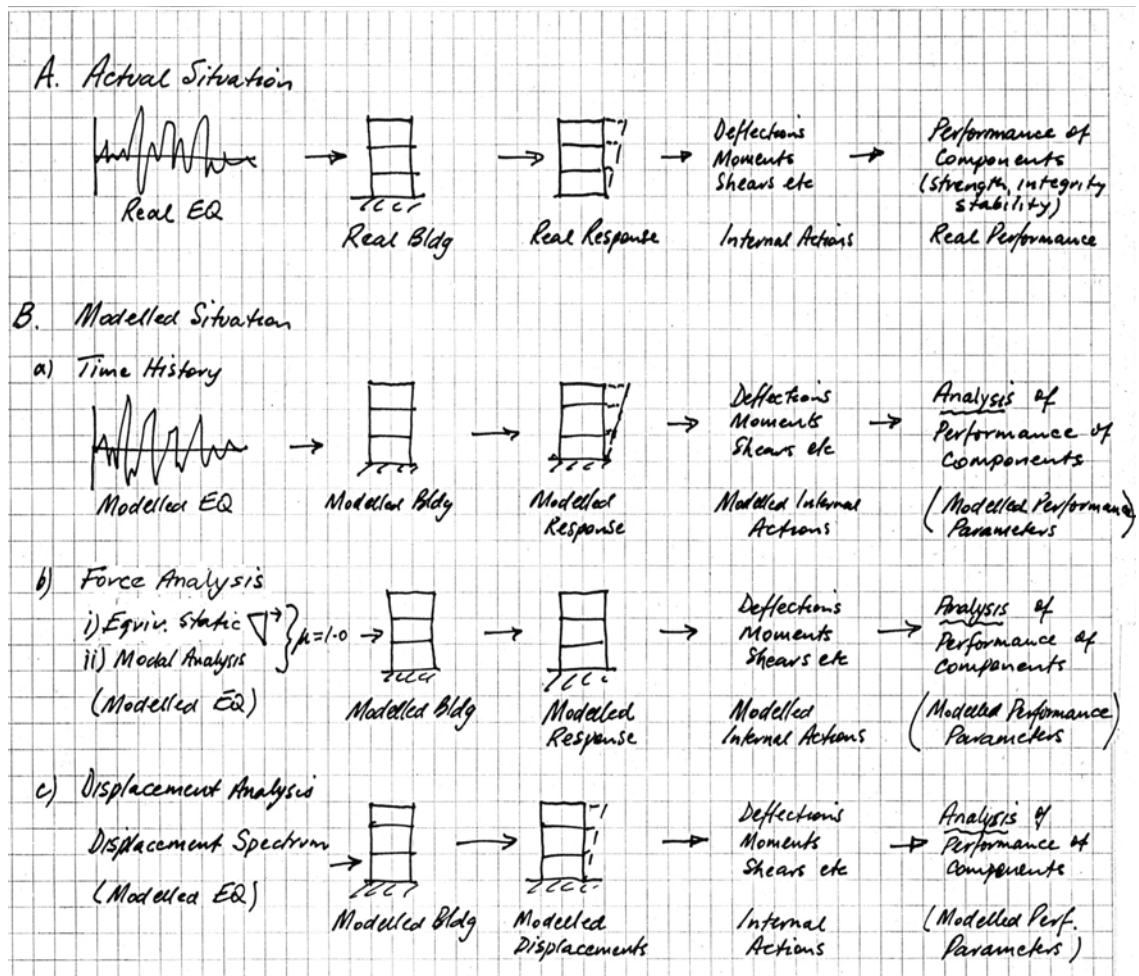 A. Actual Situation
Real EQ
Real Bldg
Real Response
Deflections
Moments
Shears etc
Internal Actions
Performance of
Components
(strength, integrity
stability)
Real Performance
B. Modelled Situation
a) Time History
Modelled EQ
Modelled Bldg
Modelled
Response
Deflections
Moments
Shears etc
Modelled Internal
Actions
Analysis of
Performance of
Components
(Modelled Performance
Parameters)
b) Force Analysis
i) Equiv. Static
ii) Modal Analysis
μ=1.0
(Modelled EQ)
Modelled Bldg
Modelled
Response
Deflections
Moments
Shears etc
Modelled
Internal Actions
Analysis of
Performance of
Components
(Modelled Performance
Parameters)
c) Displacement Analysis
Displacement Spectrum
(Modelled EQ)
Modelled Bldg
Modelled
Displacements
Deflections
Moments
Shears etc
Internal
Actions
Analysis of
Performance of
Components
(Modelled Perf.
Parameters)